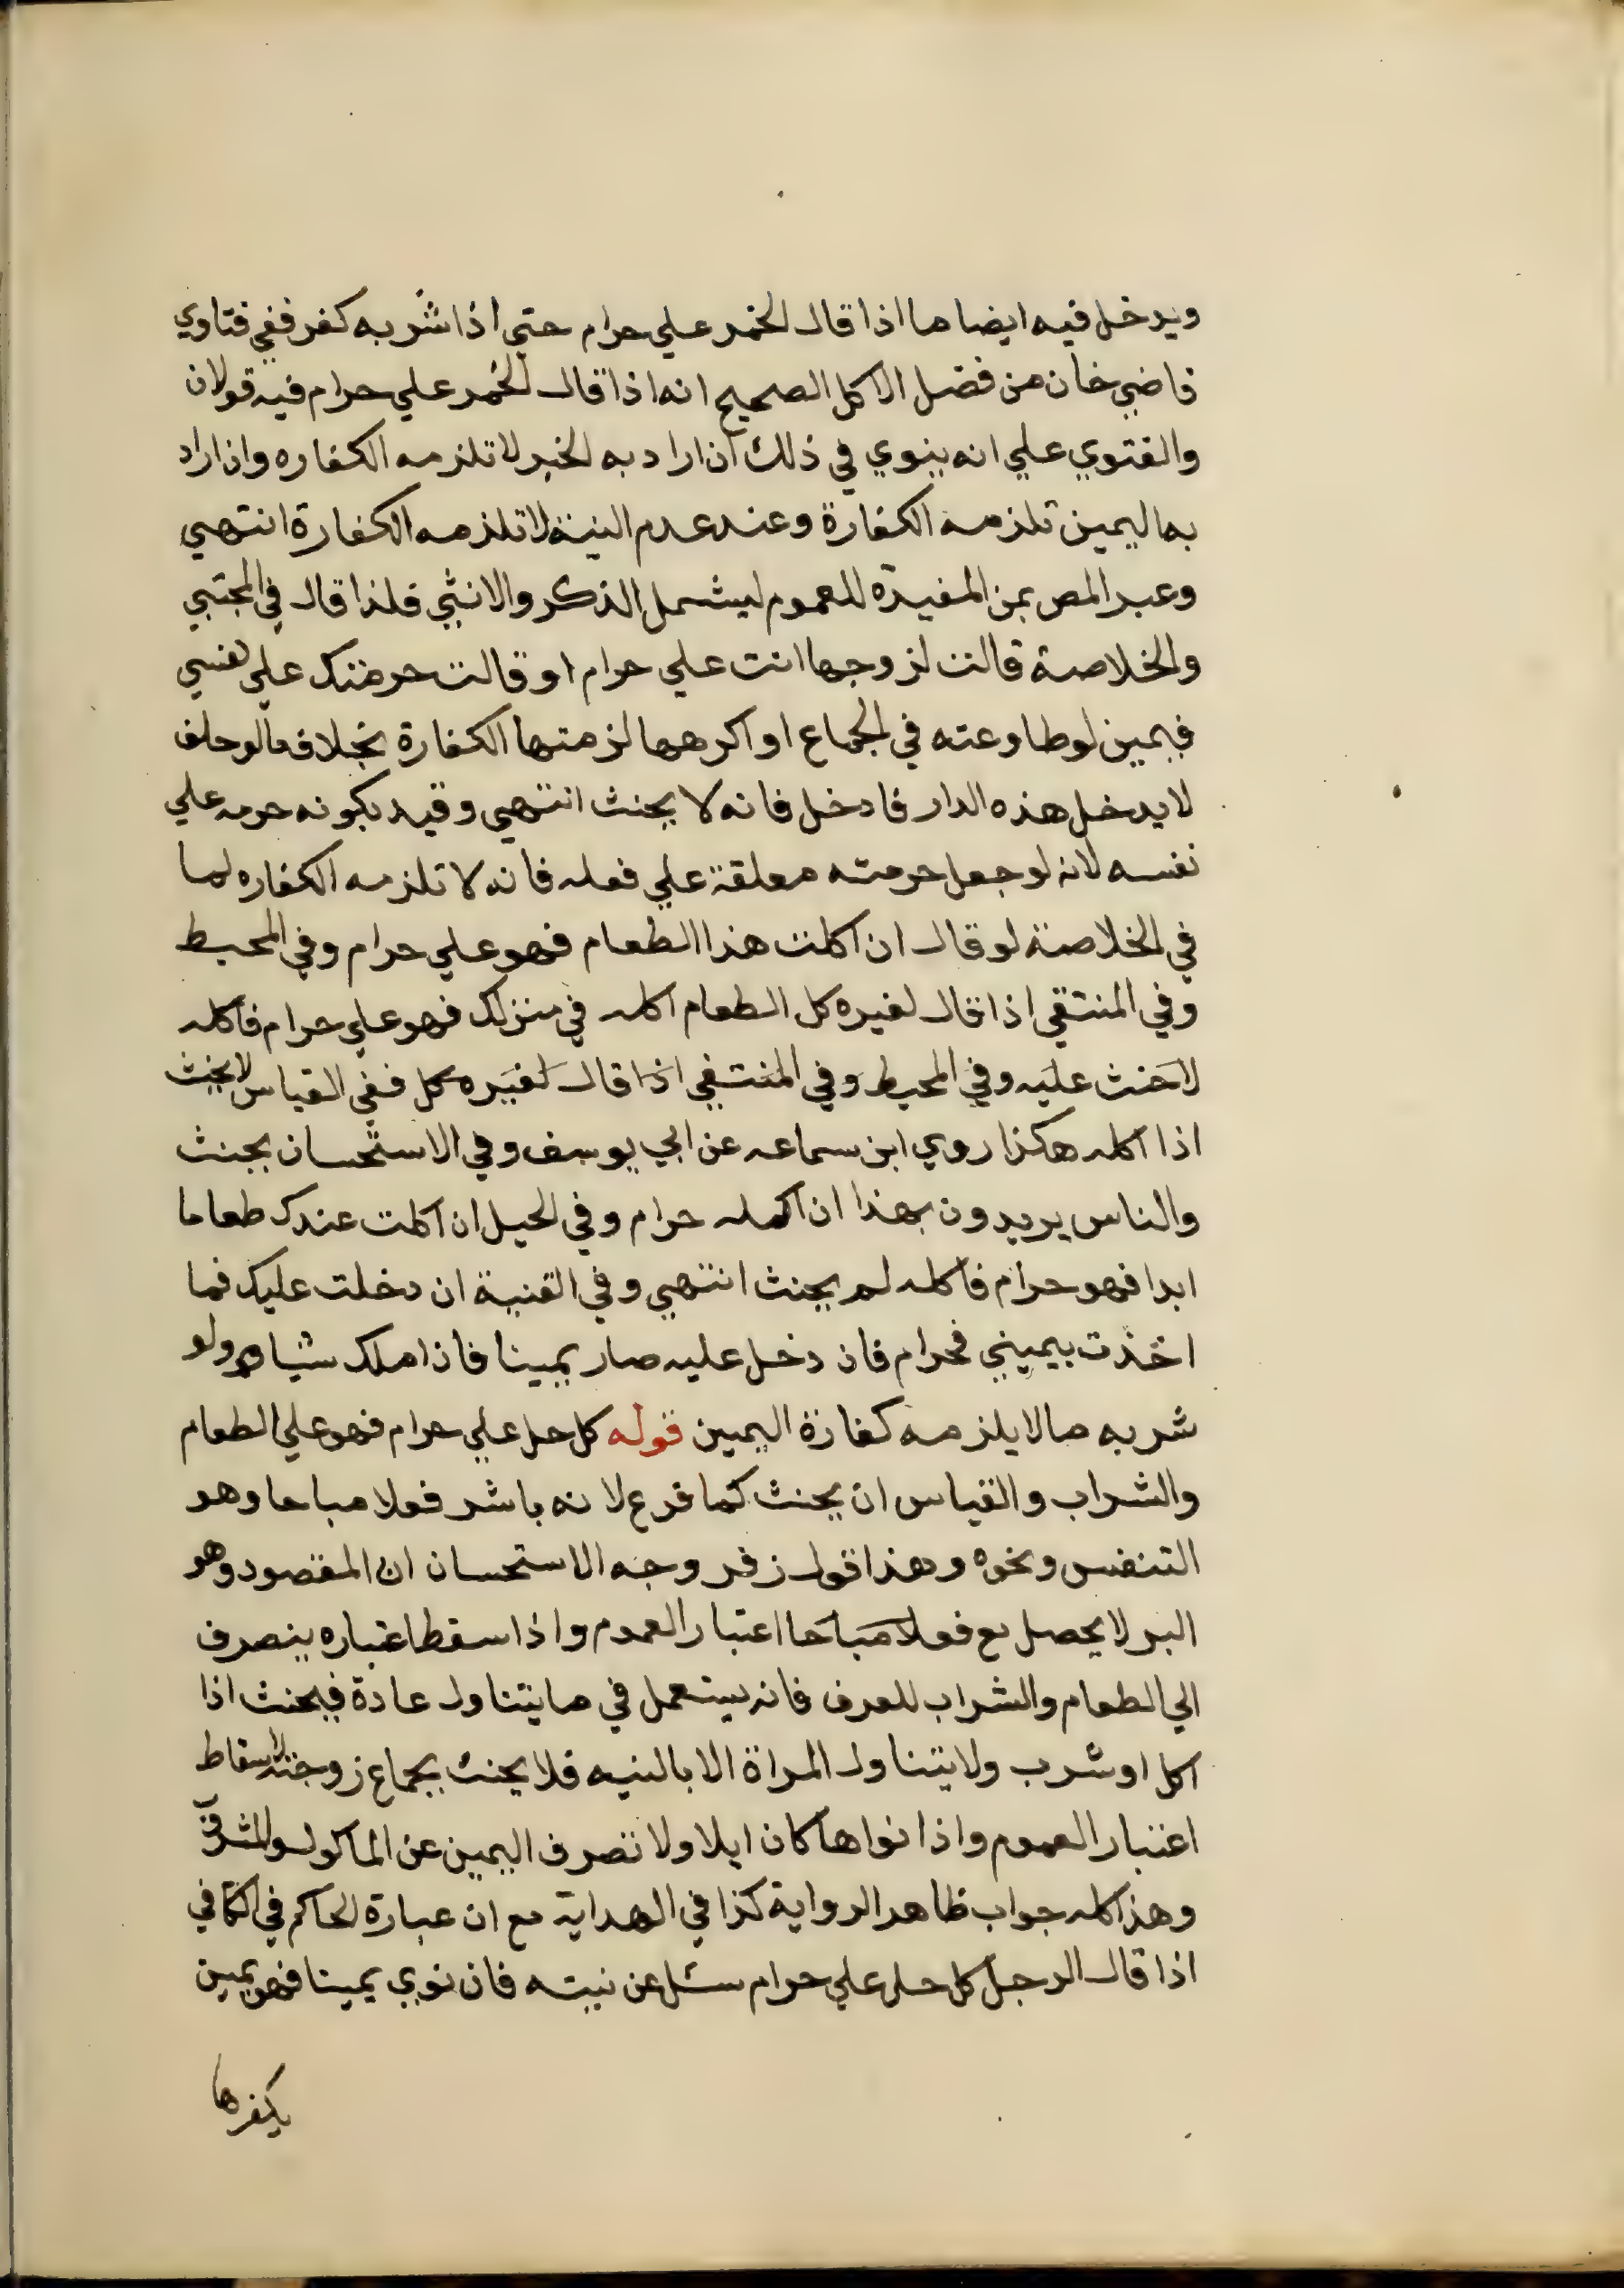 ويدخل فيه ايضا ما اذا قال الخمر علي حرام حتي اذا شربه كفر ففي فتاوي
قاضي خان من فصل الاكل الصحيح انه اذا قال الخمر علي حرام فيه قولان
والفتوي علي انه ينوي في ذلك ان اراد به الخبر لا تلزمه الكفاره وان اراد
به اليمين تلزمه الكفارة وعند عدم النية لا تلزمه الكفارة انتهي
وعبر المص بمن المفيدة للعموم ليشمل الذكر والانثي فلذا قال في المجتبي
والخلاصة قالت لزوجها انت علي حرام او قالت حرمتك علي نفسي
فيمين لو طاوعته في الجماع او اكرهها لزمتها الكفارة بخلاف ما لو حلف
لا يدخل هذه الدار فادخل فانه لا يحنث انتهي وقيد بكونه حرمه علي
نفسه لانه لو جعل حرمته معلقة علي فعله فانه لا تلزمه الكفاره لما
في الخلاصة لو قال ان اكلت هذا الطعام فهو علي حرام وفي المحيط
وفي المنتقي اذا قال لغيره كل الطعام اكله في منزلك فهو علي حرام فاكله
لا حنث عليه وفي المحيط وفي المنتقي اذا قال لغيره كل ففي القياس لا يحنث
اذا اكله هكذا روي ابن سماعه عن ابي يوسف وفي الاستحسان يحنث
والناس يريدون بهذا ان اكله حرام وفي الحيل ان اكلت عندك طعاما
ابدا فهو حرام فاكله لم يحنث انتهي وفي القنية ان دخلت عليك فما
اخذت بيميني فحرام فان دخل عليه صار يمينا فاذا ملك شيا ولو
شربه مالا يلزمه كفارة اليمين قوله كل حل علي حرام فهو علي الطعام
والشراب والقياس ان يحنث كما فرع لانه باشر فعلا مباحا وهو
التنفس ونحوه وهذا قول زفر وجه الاستحسان ان المقصود وهو
البر لا يحصل مع فعلا مباحا اعتبار العموم واذا سقط اعتباره ينصرف
الي الطعام والشراب للعرف فانه يستعمل في ما يتناول عادة فيحنث اذا
اكل او شرب ولا يتناول المراة الا بالنيه فلا يحنث بجماع زوجته لاسقاط
اعتبار العموم واذا نواها كان ايلا ولا تصرف اليمين عن الماكول والمشروب
وهذا كله جواب ظاهر الرواية كذا في الهداية مع ان عبارة الحاكم في الكافي
اذا قال الرجل كل حل علي حرام سئل عن نيته فان نوي يمينا فهو يمين
يكفرها